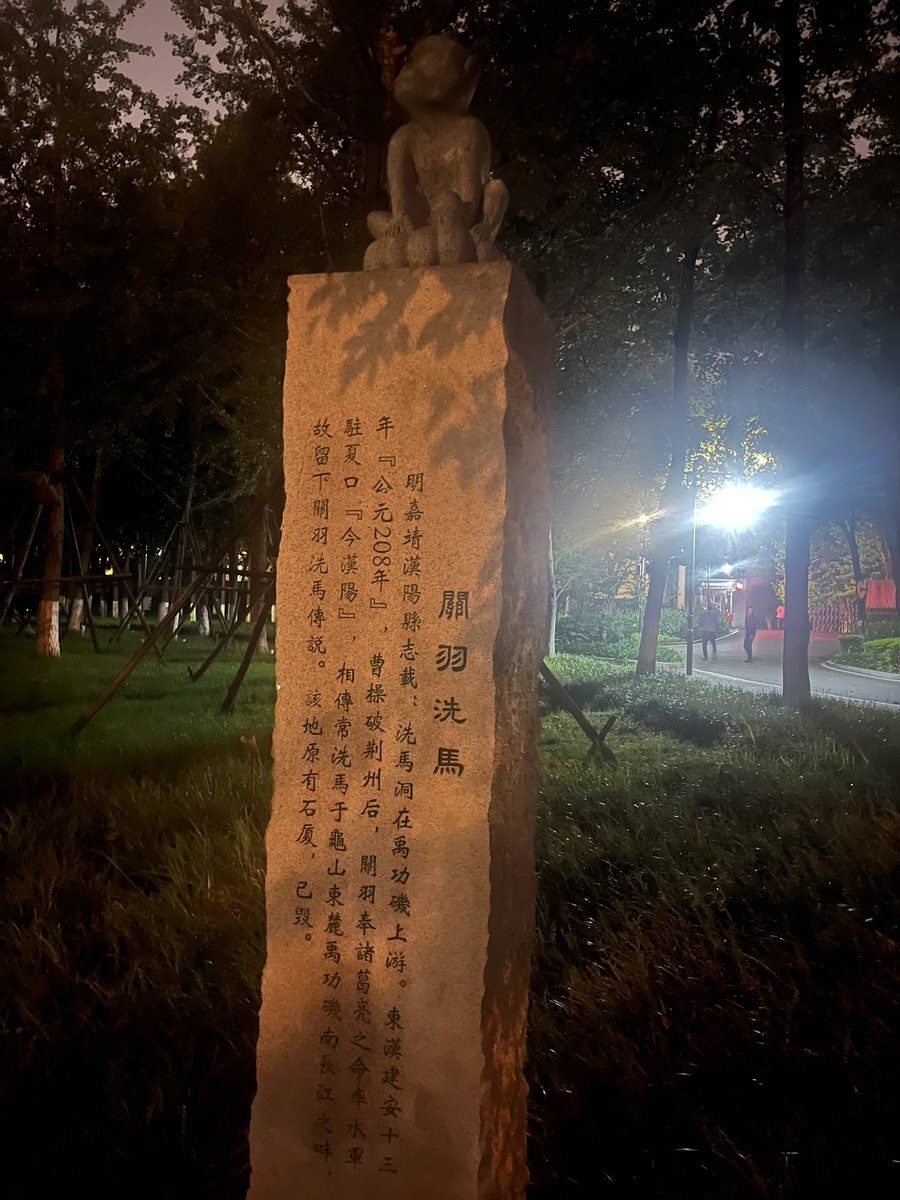 關羽洗馬
明嘉靖漢陽縣志載：洗馬洞在禹功磯上游。東漢建安十三
年『公元208年』，曹操破荆州后，關羽奉諸葛亮之命率水軍
駐夏口『今漢陽』，相傳常洗馬于龜山東麓禹功磯南長江之畔，
故留下關羽洗馬傳説。該地原有石厦，已毁。